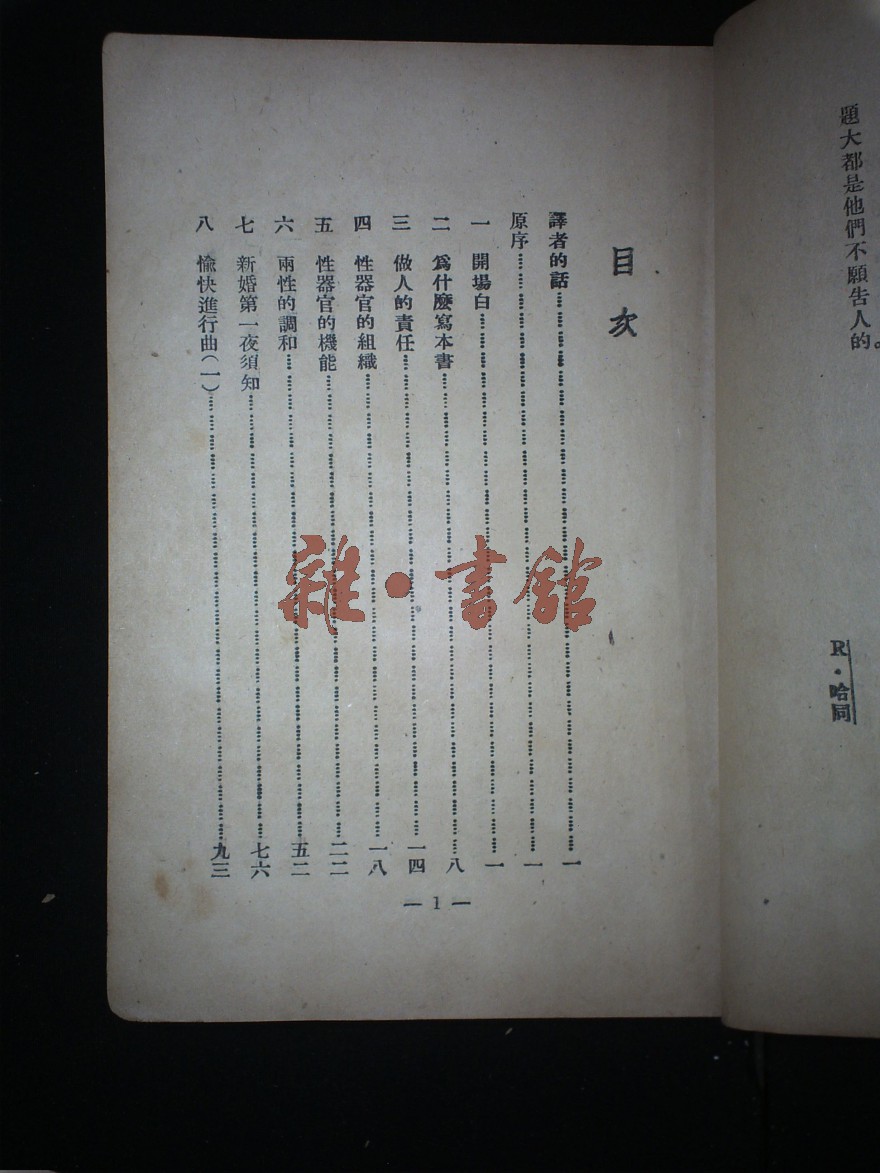 題大都是他們不願告人的。
R・哈同
目次
譯者的話……一
原序……一
一 開場白……一
二 爲什麽寫本書……八
三 做人的責任……一四
四 性器官的組織……一八
五 性器官的機能……二二
六 兩性的調和……五二
七 新婚第一夜須知……七六
八 愉快進行曲(一)……九三
— 1 —
雜・書館